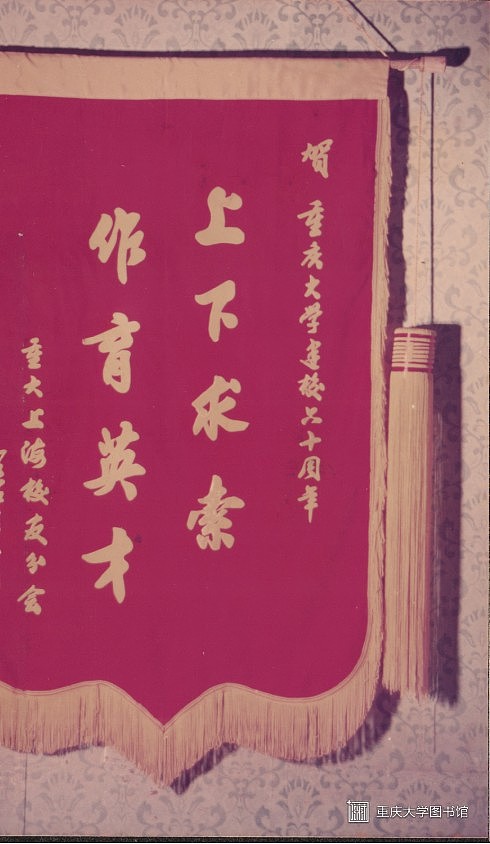 贺 重庆大学建校六十周年
上下求索
作育英才
重大上海校友分会
重庆大学图书馆